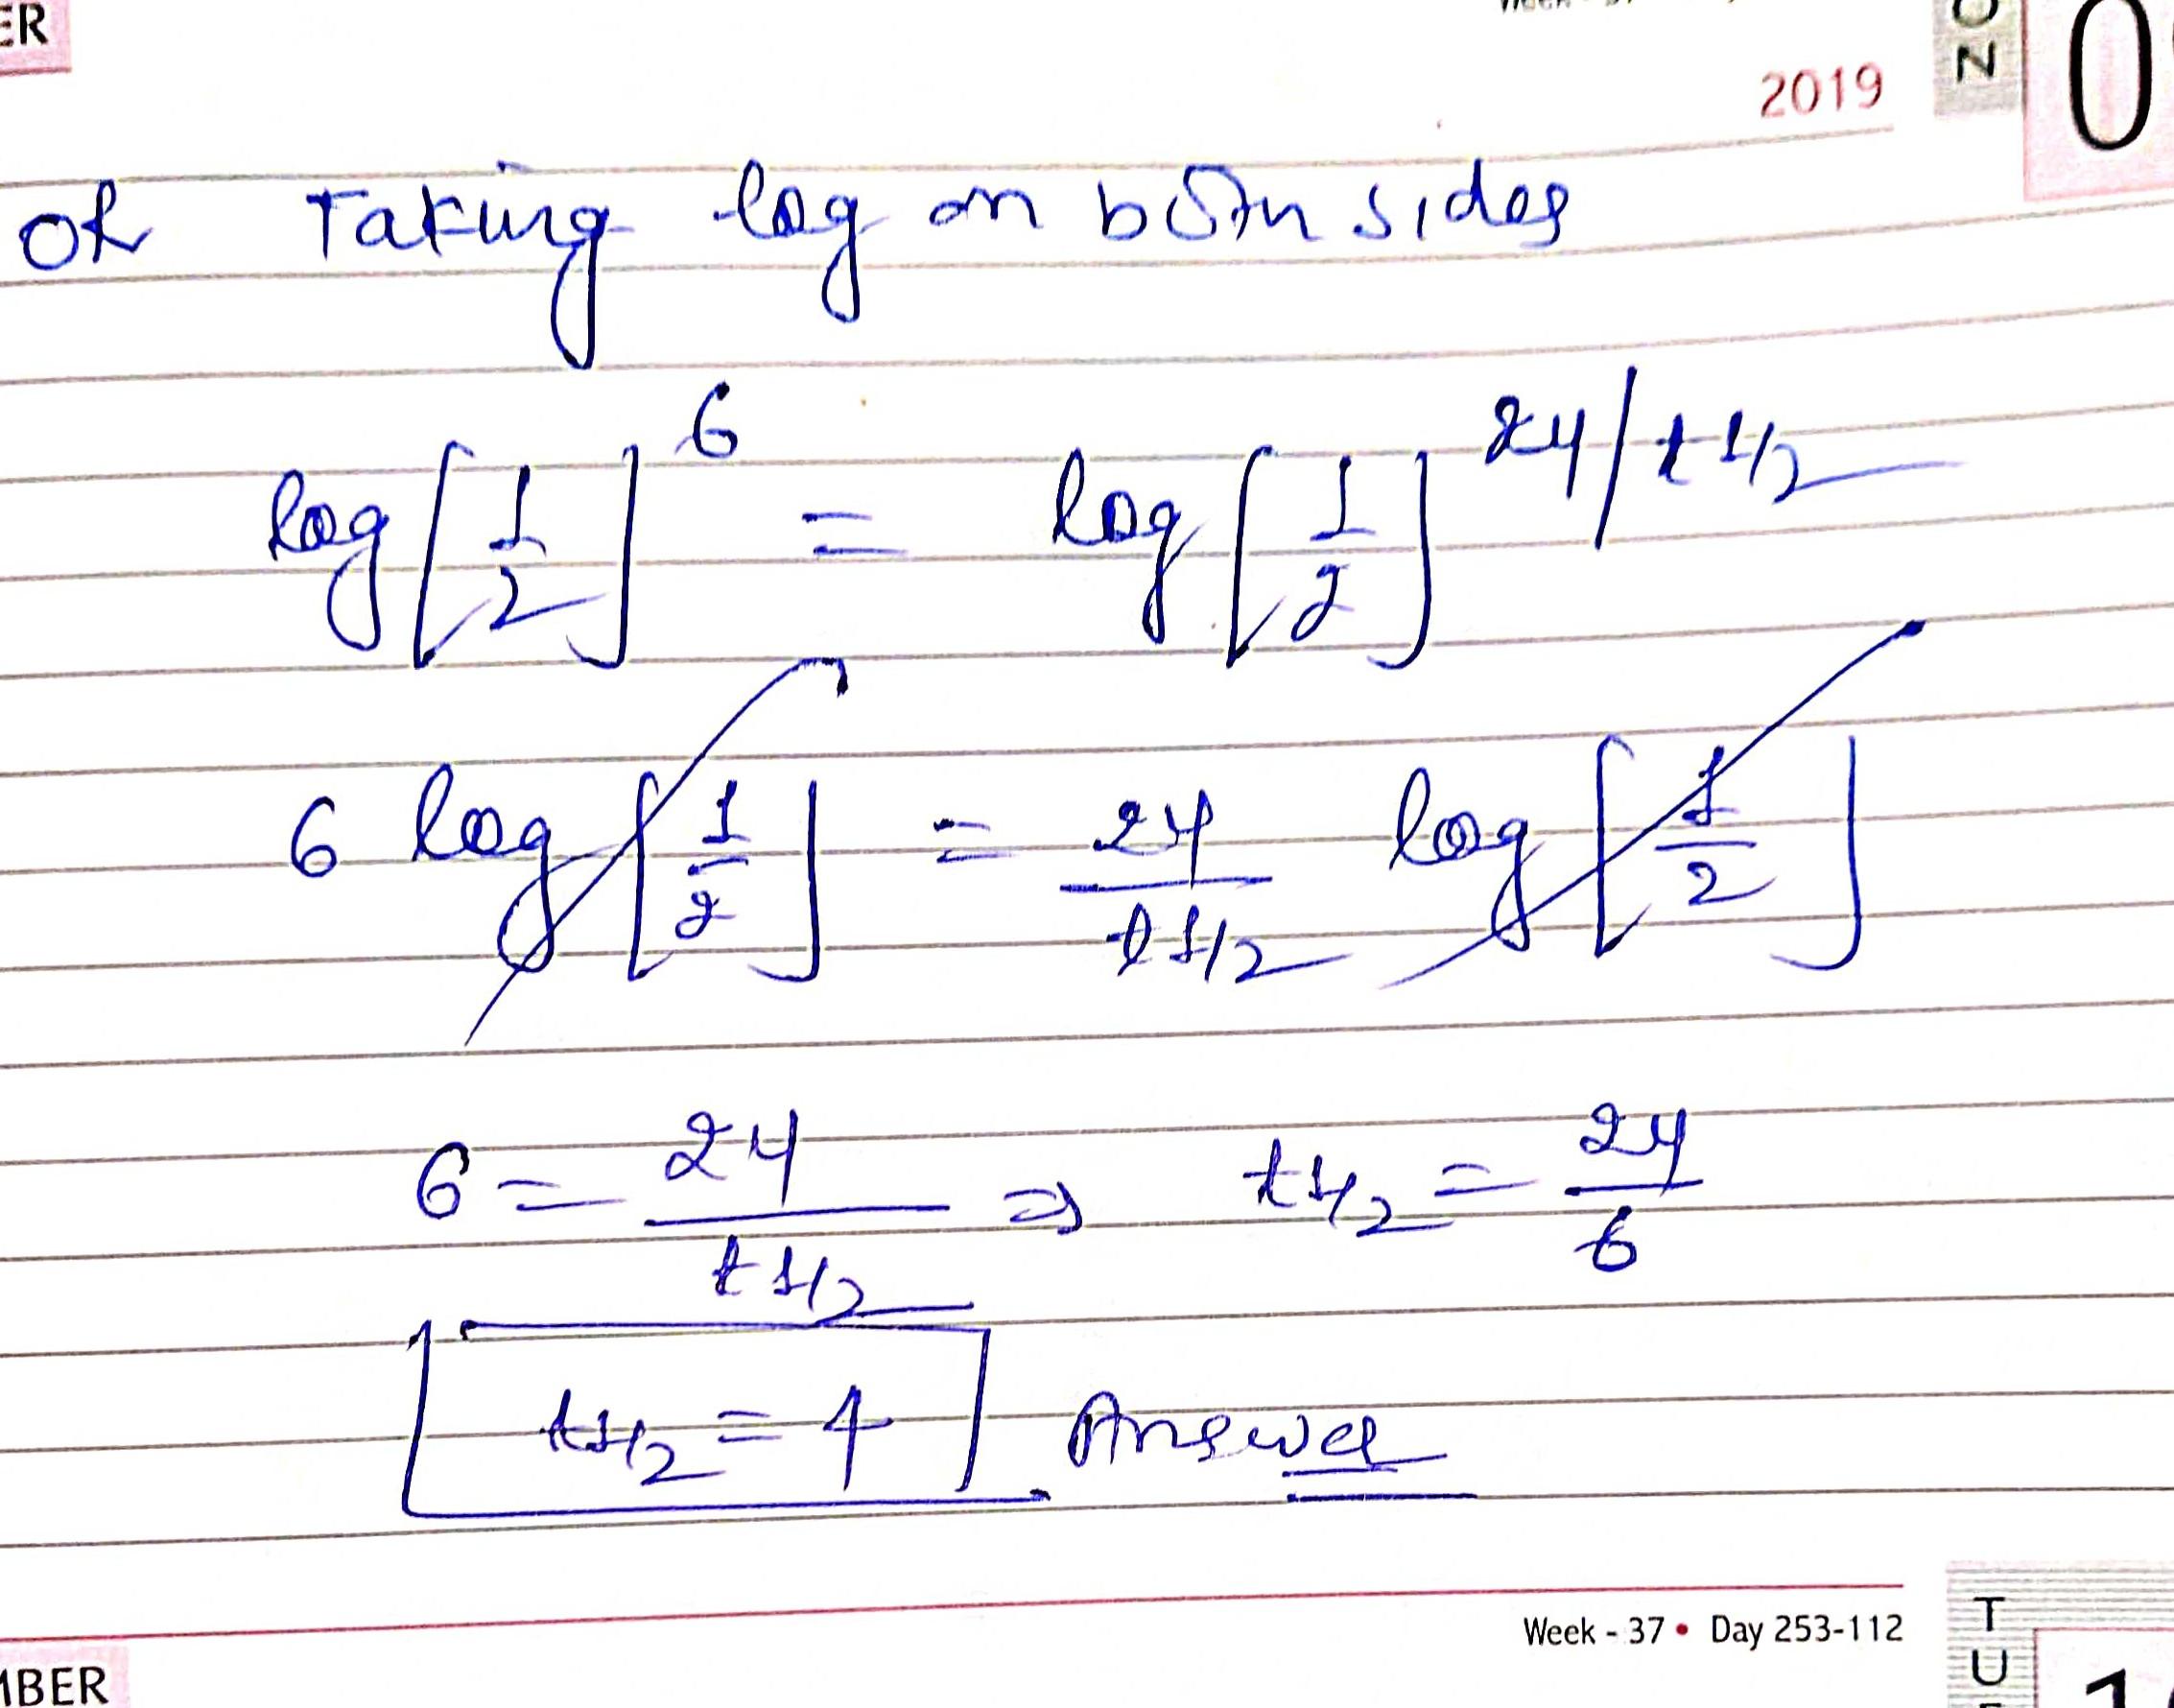 ER
2019
ON
0
OR Taking log on both sides
log [1/2]^6 = log [1/2]^24/t1/2
6 log [1/2] = 24/t1/2 log [1/2]
6 = 24/t1/2 ⇒ t1/2 = 24/6
t1/2 = 4 Answer
Week - 37 • Day 253-112
TU
MBER